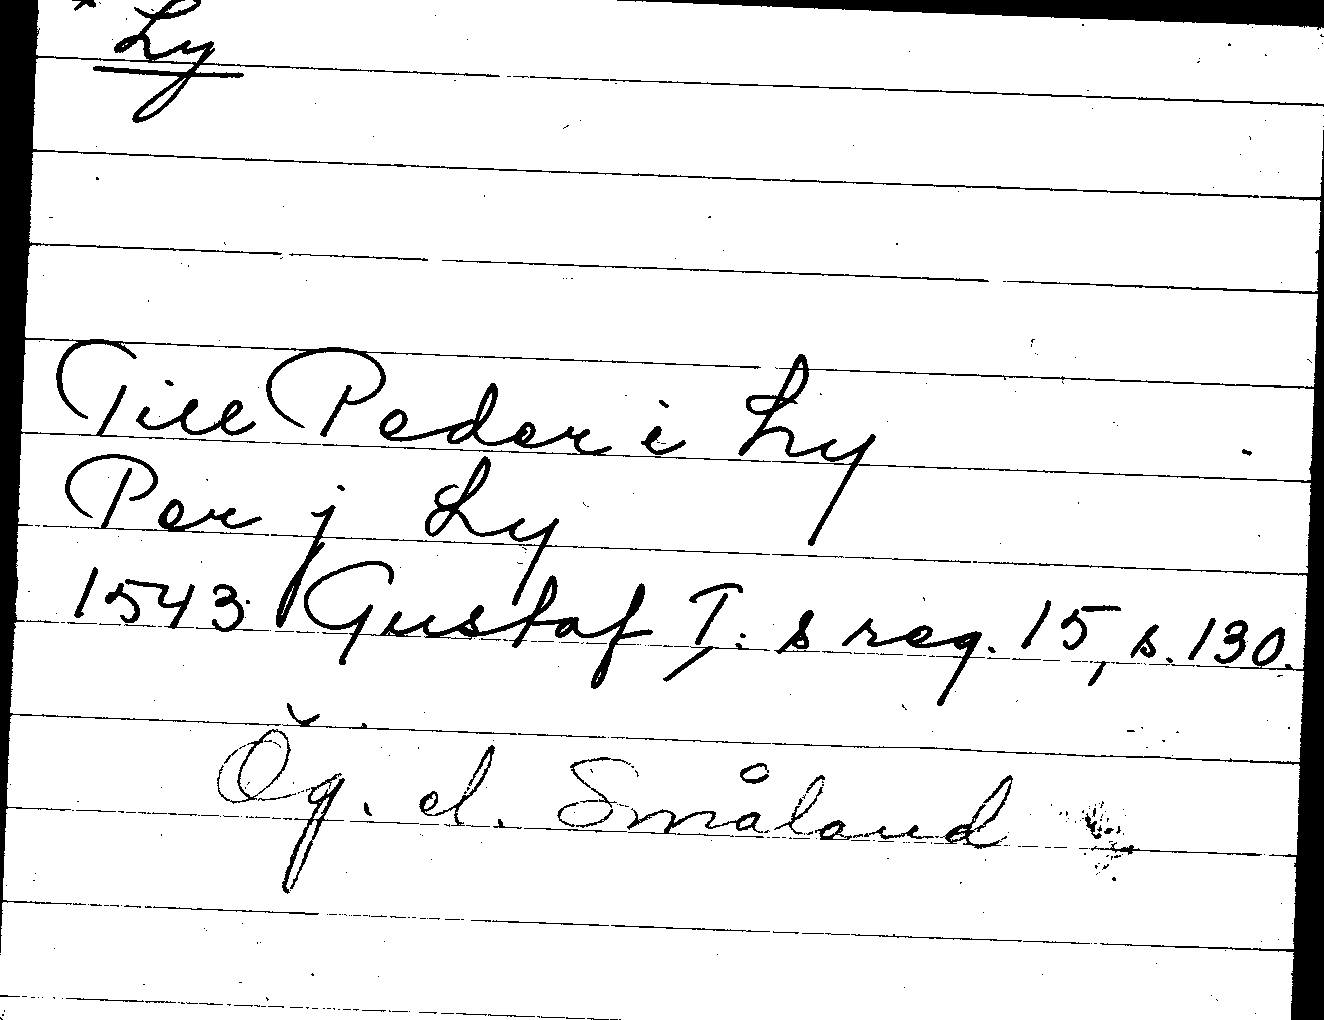 * Ly
Till Peder i Ly
Per j Ly
1543 Gustaf I:s reg. 15, s. 130.
Ög. el. Småland